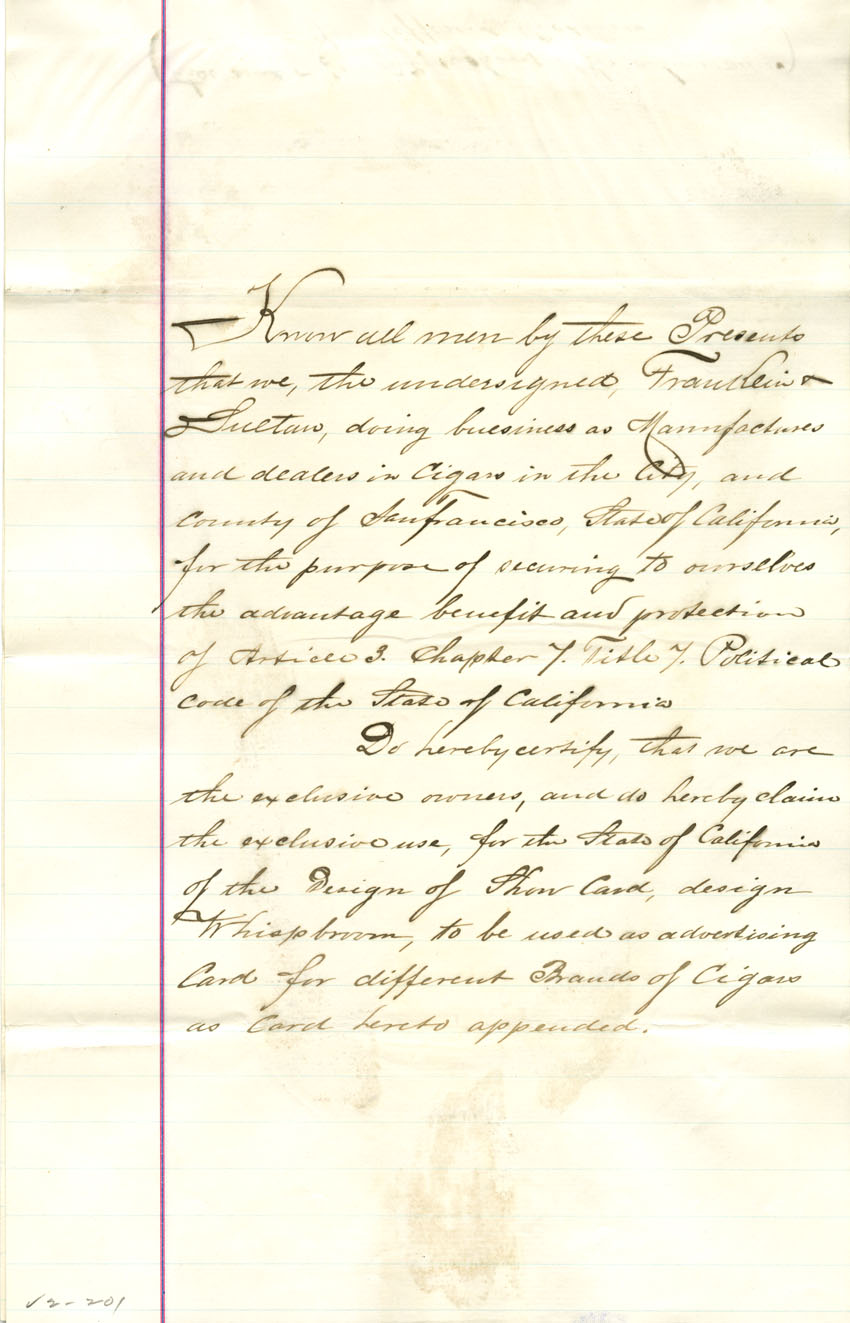 Know all men by these Presents
that we, the undersigned, Franklin &
Sultan, doing buesiness as Mannfactures
and dealers in Cigars in the City, and
County of San Francisco, State of California,
for the purpose of securing to ourselves
the advantage benefit and protection
of Article 3. Chapter 7. Title 7. Political
Code of the State of California
Do hereby certify, that we are
the exclusive owners, and do hereby claim
the exclusive use, for the State of California
of the Design of Show Card, design
Whispbroom, to be used as advertising
Card for different Brands of Cigars
as Card hereto appended.
V2-201